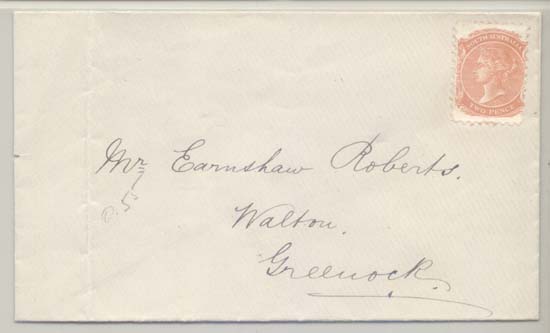 SOUTH AUSTRALIA
TWO PENCE
Mr Earnshaw Roberts.
0.5
Walton.
Greenock.